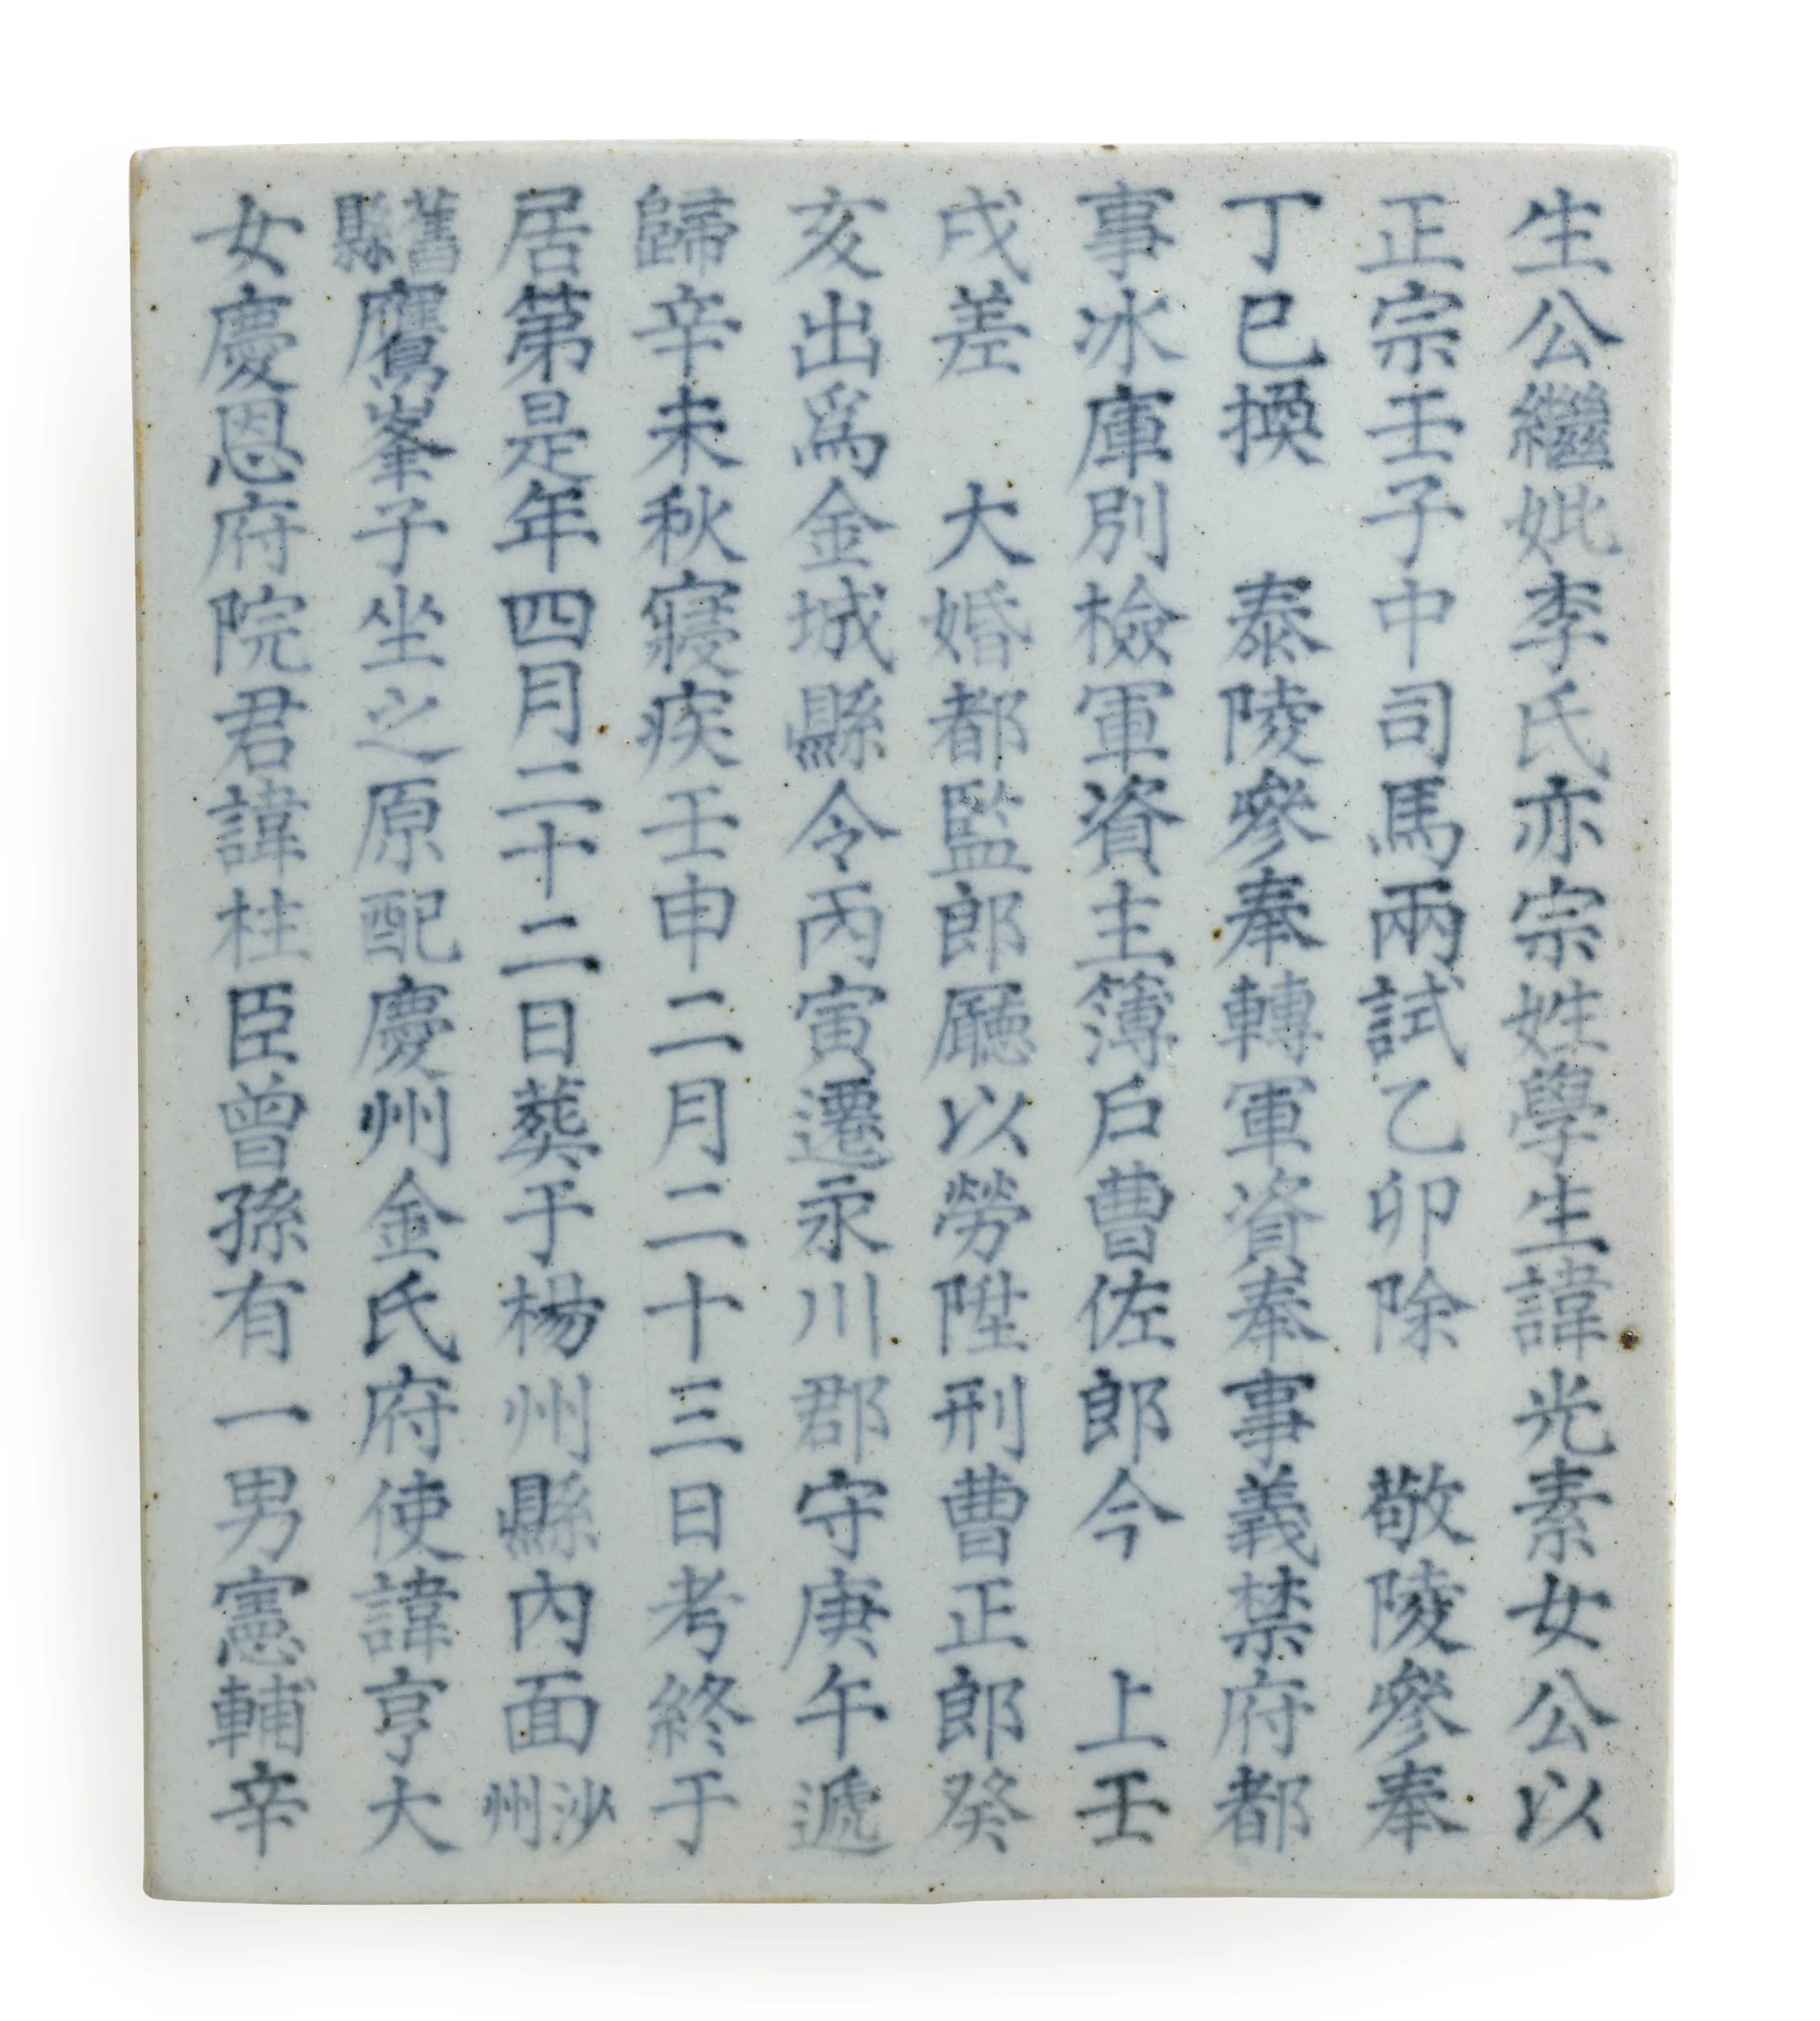 生公繼妣李氏亦宗姓學生諱光素女公以
正宗壬子中司馬兩試乙卯除　敬陵參奉
丁巳換　泰陵參奉轉軍資奉事義禁府都
事冰庫別檢軍資主簿戶曹佐郎今　上壬
戌差　大婚都監郎廳以勞陞刑曹正郎癸
亥出爲金城縣令丙寅遷永川郡守庚午遞
歸辛未秋寢疾壬申二月二十三日考終于
居第是年四月二十二日葬于楊州縣內面沙州
舊縣鷹峯子坐之原配慶州金氏府使諱亨大
女慶恩府院君諱柱臣曾孫有一男憲輔辛